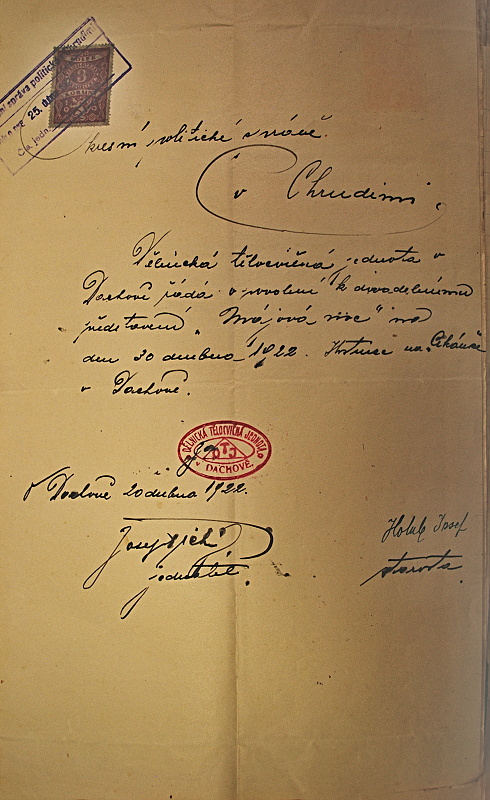 správa politick
25. dub
Čís. jedn.
3
Okresní politické správě
v Chrudimi.
Dělnická tělocvičná jednota v
Dachově žádá o povolení k divadelnímu
představení „Májová noc“ na
den 30 dubna 1922. v hostinci na „Cikánce
v Dachově.
DĚLNICKÁ TĚLOCVIČNÁ JEDNOTA
DTJ
V DACHOVĚ.
V Dachově 20 dubna 1922.
Josef
Holub Josef
jednatel.
starosta.